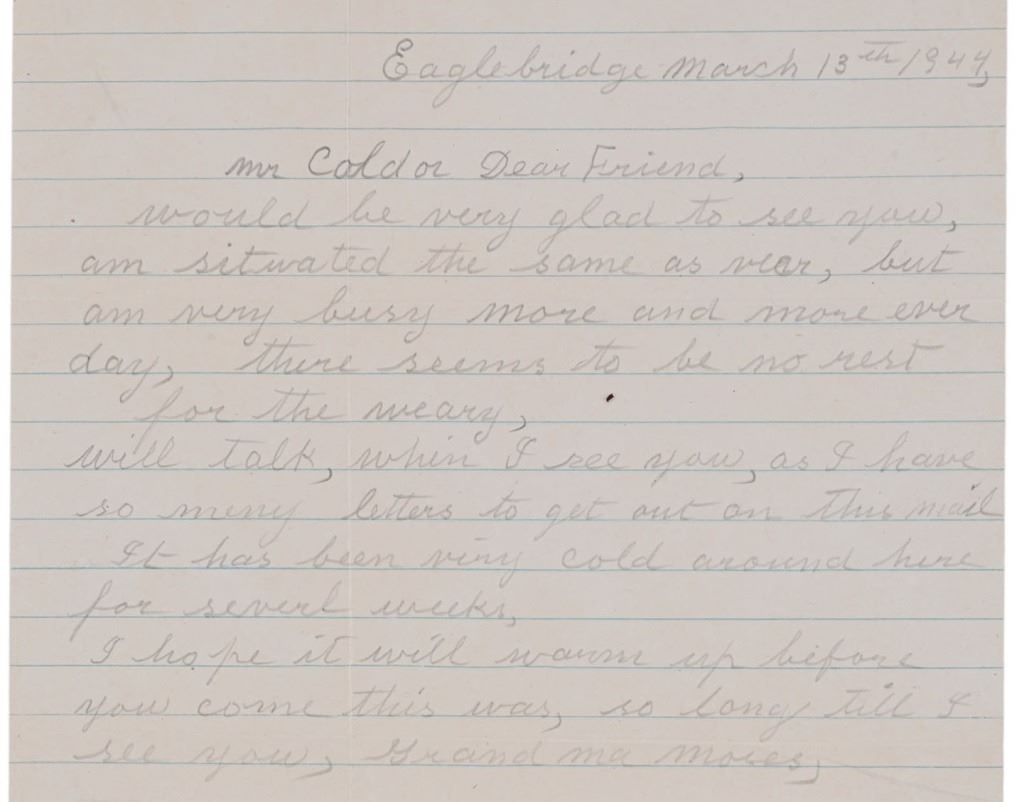 Eaglebridge March 13th 1944,
mr Caldor Dear Friend,
would be very glad to see you,
am sitwated the same as veor, but
am very busy more and more ever
day, there seems to be no rest
for the weary,
will talk, when I see you, as I have
so meny letters to get out on this mail
It has been very cold around here
for severl weeks,
I hope it will warm up before
you come this was, so long till I
see you, Grand ma Moses,